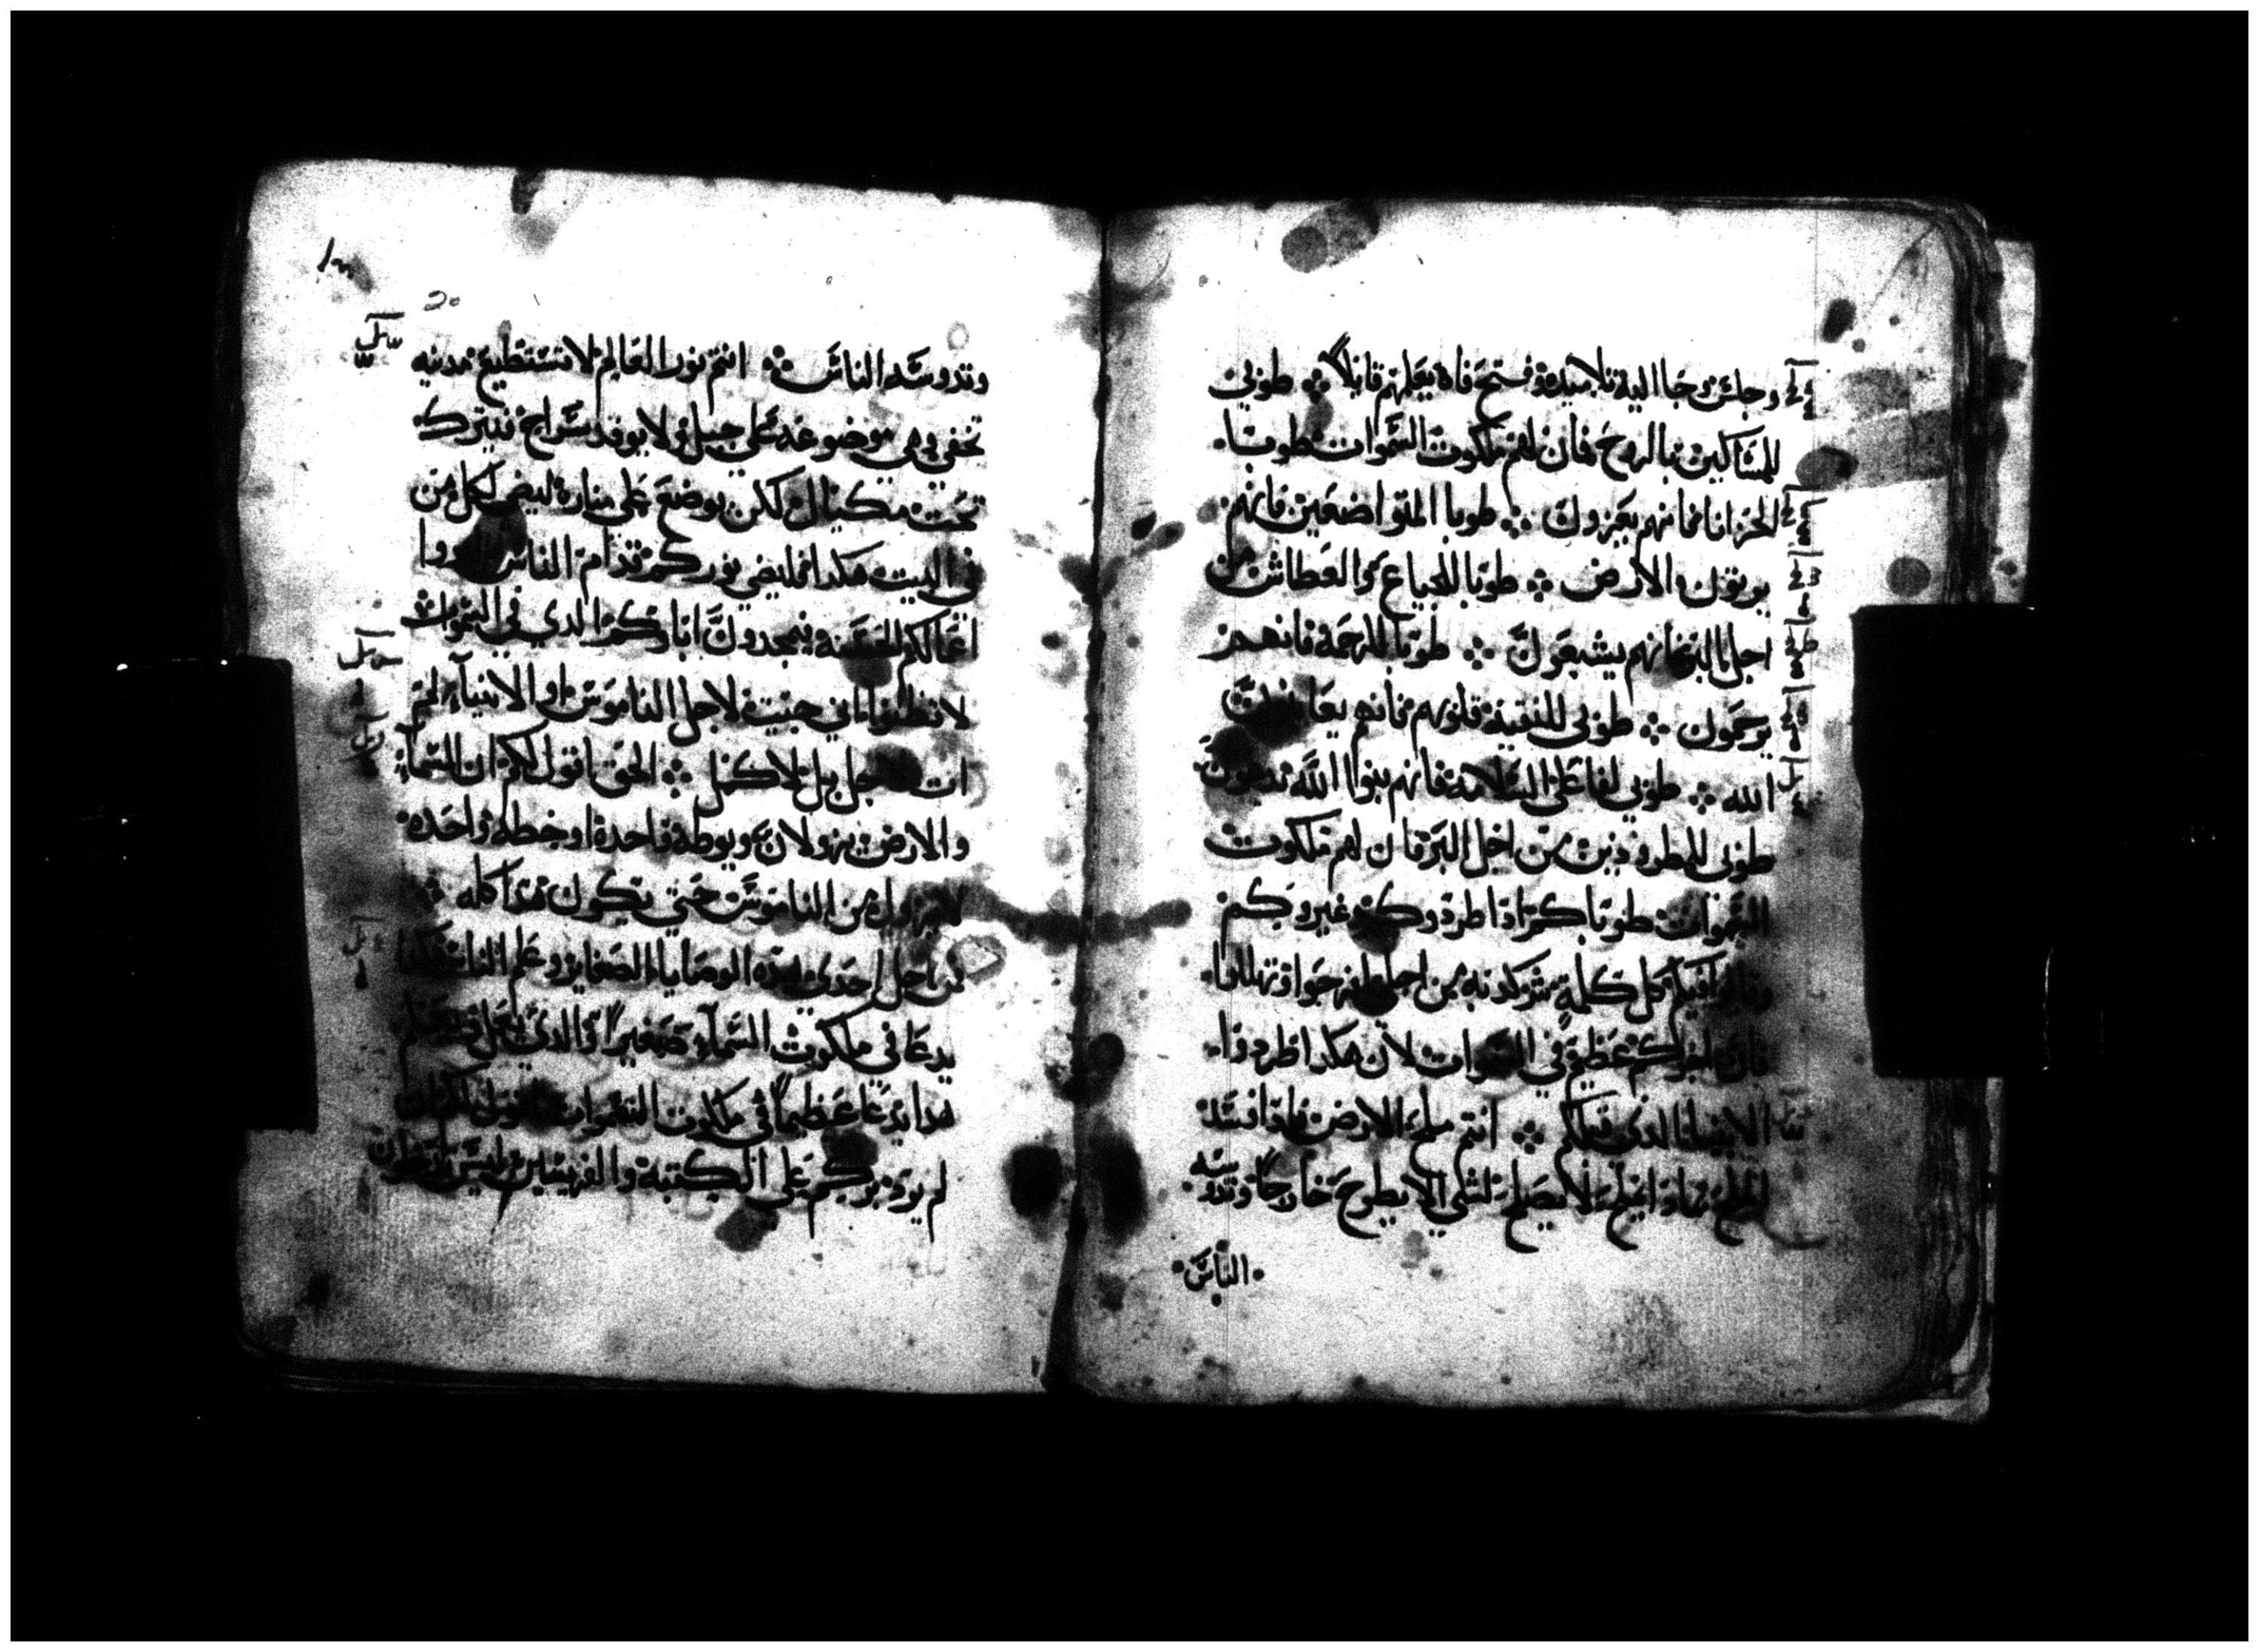 وجلس وجا اليه تلاميده وفتح فاه يعلمهم قايلاً طوبي
للمساكين بالروح فان لهم ملكوت السموات طوبا
للحزانا فانهم يعزون طوبا المتواضعين فانهم
يرتون الارض طوبا للجياع والعطاش من
اجل البر فانهم يشبعون طوبا للرحمه فانهم
يرحمون طوبي للنقيه قلوبهم فانهم يعاينون
الله طوبي لفاعلي السلامه فانهم بنوا الله يدعون
طوبي للمطرودين من اجل البر فان لهم ملكوت
السموات طوباكم اذا طردوكم وعيروكم
وقالوا فيكم كل كلمة شر كدبه من اجلي افرحوا وتهللوا
فان اجركم عظيم في السموات لان هكدا طردوا
الانبيا الدي قبلكم انتم ملح الارض فادا فسد
الملح بمادا يملح لا يصلح لشي الا يطرح خارجًا وتدوسه
الناس
20
وتدوسه الناس انتم نور العالم لا تستطيع مدينه
تخفي وهي موضوعه علي جبل ولا يوقد سراج فيترك
تحت مكيال لكن يوضع علي مناره ليضي لكل من
في البيت هكدا فليضي نوركم قدام الناس ليروا
اعمالكم الحسنه فيمجدون اباكم الدي في السموات
لا تظنوا اني جيت لاجل الناموس او الانبيآ لم
ات لاحل بل لاكمل الحق اقول لكم ان السمآ
والارض يزولان ويوطه واحدة او خطه واحده
لا يزول من الناموس حتي يكون هدا كله
من احل احدي هده الوصايا الصغاير وعلم الناس هكدا
يدعا في ملكوت السمآء صغيرًا والدي يعمل ويعلم
هدا يدعا عظيمًا في ملكوت السموات اقول لكم ان
لم يزد بركم علي الكتبه والفريسيين ليس تدخلون